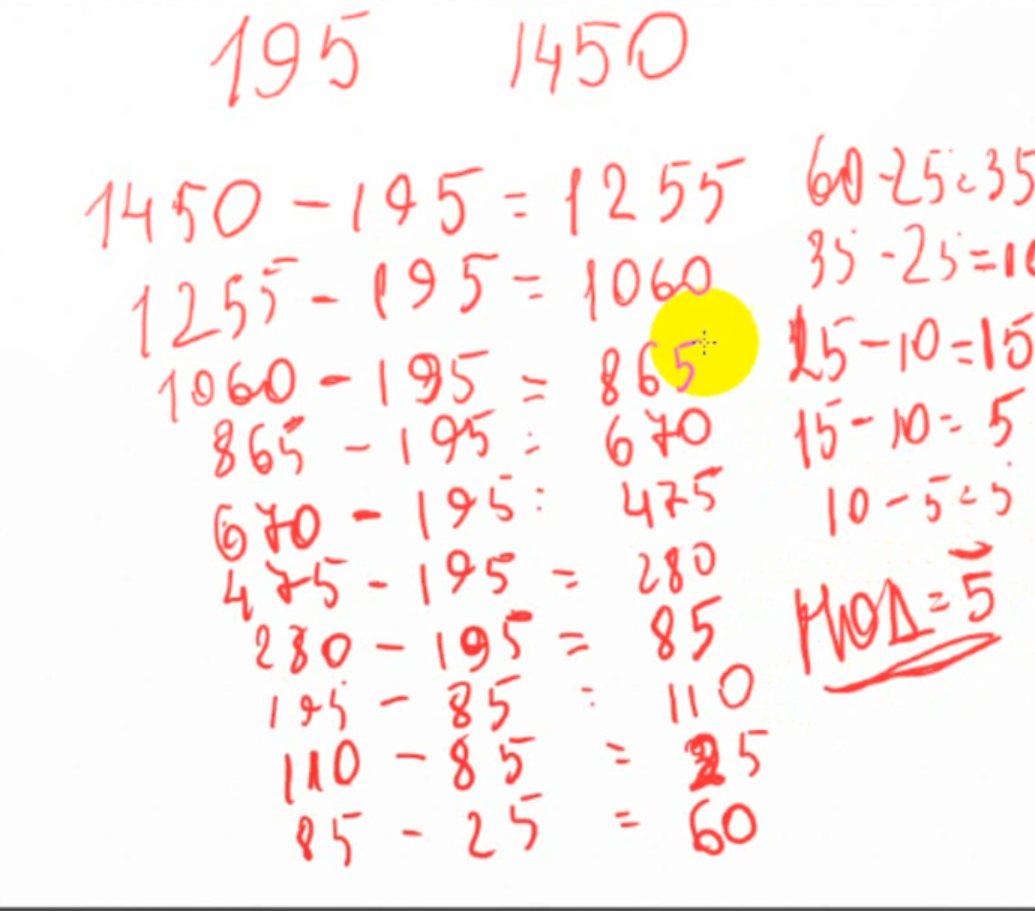 195 1450
1450 - 195 = 1255
1255 - 195 = 1060
1060 - 195 = 865
865 - 195 = 670
670 - 195 = 475
475 - 195 = 280
280 - 195 = 85
195 - 85 = 110
110 - 85 = 25
85 - 25 = 60
60 - 25 = 35
35 - 25 = 10
25 - 10 = 15
15 - 10 = 5
10 - 5 = 5
НОД = 5